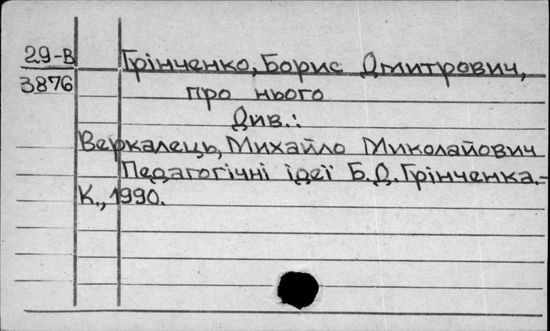 29-В
3876
Грінченко, Борис Дмитрович,
про нього
Див.:
Веркалець, Михайло Миколайович
Педагогічні ідеї Б.Д. Грінченка.-
К., 1990.